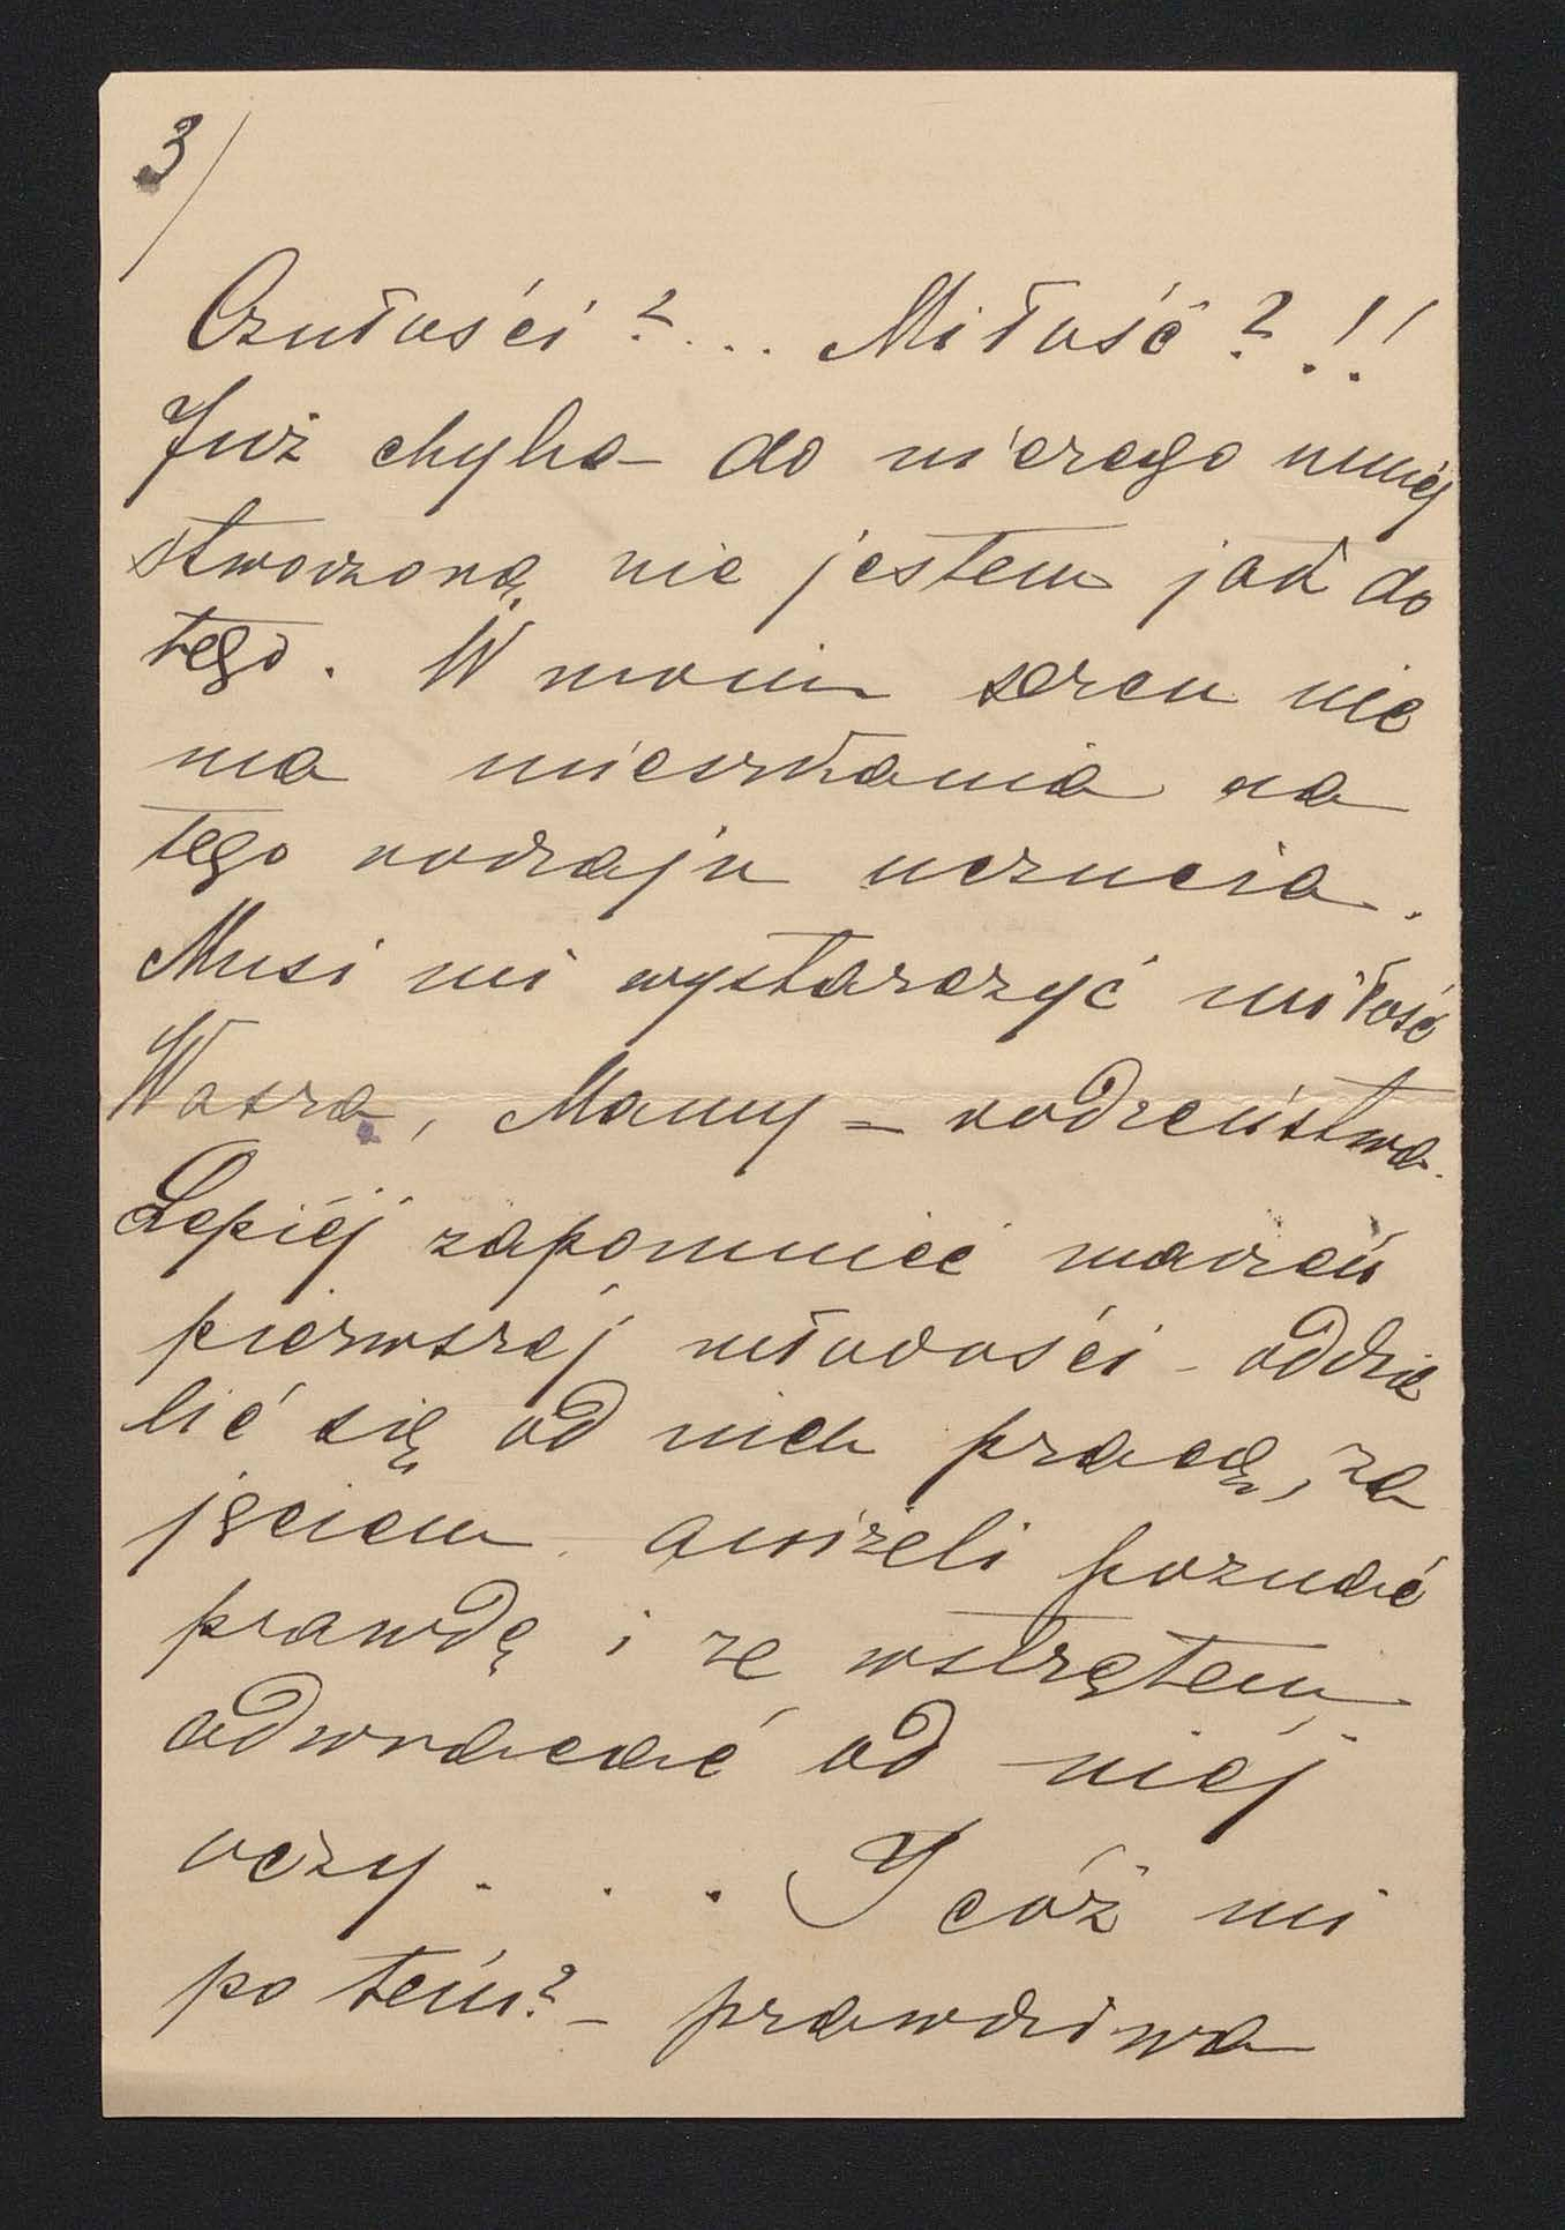 3/
Czułości?... Miłość?!!
Już chyba do niczego mniéj
stworzoną nie jestem jak do
tego. W moim sercu nie
ma mieszkania na
tego rodzaju uczucia.
Musi mi wystarczyć miłość
Wasza, Mamy – rodzeństwa.
Lepiéj zapomnieć marzeń
pierwszéj młodości – oddzie
lić się od nich pracą, za
jęciem aniżeli poznać
prawdę i ze wstrętem
odwracać od niéj
oczy . . . I cóż mi
po tém? – prawdziwa